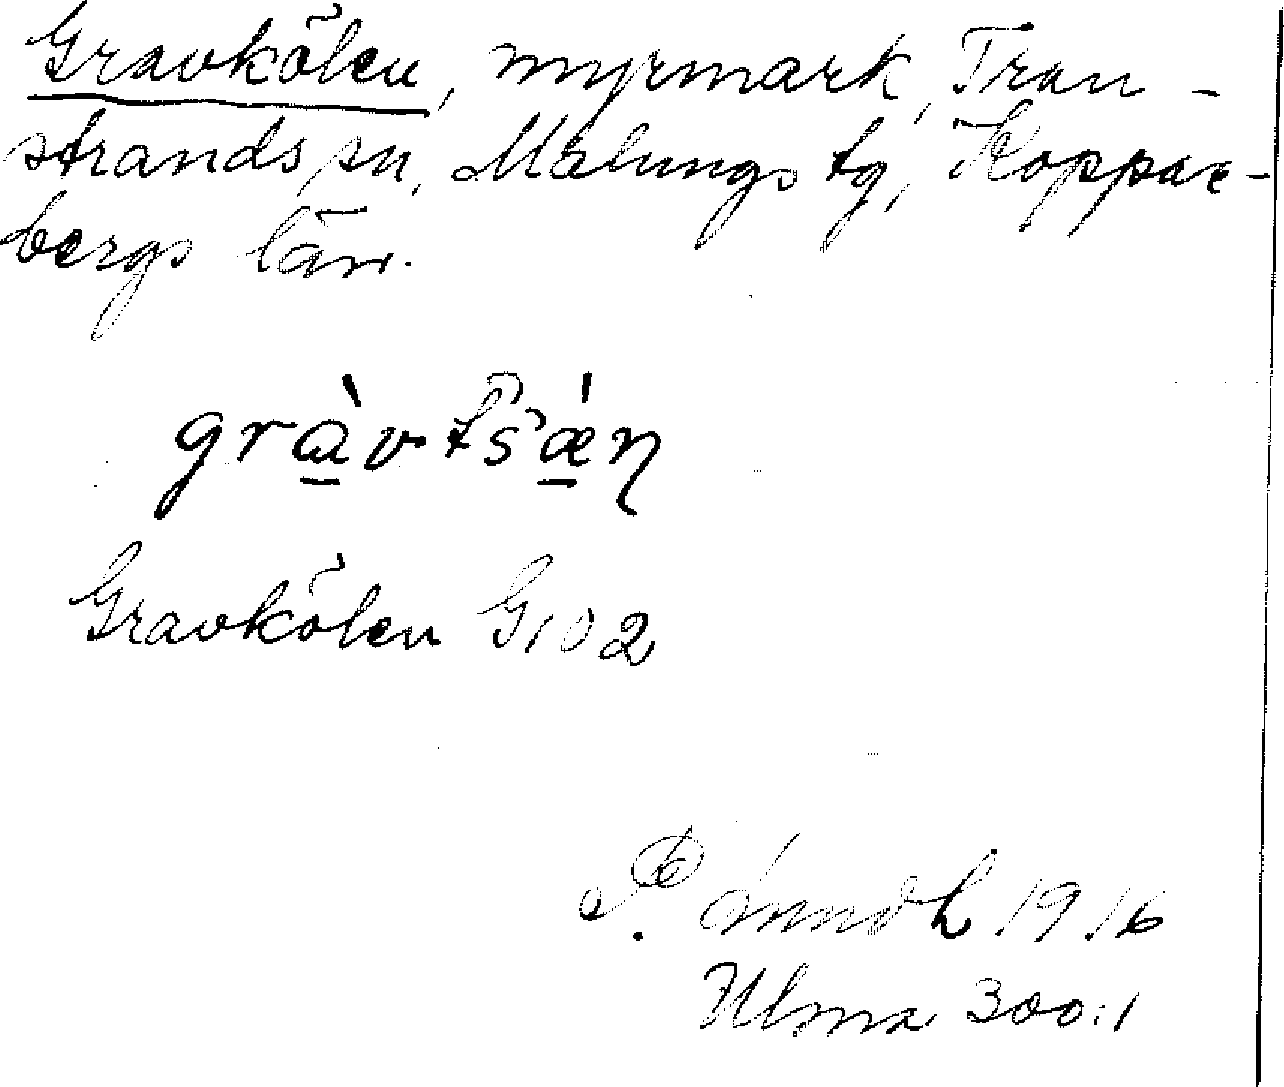 Gravkölen, myrmark, Tran-
strands sn, Malungs tg, Koppar-
bergs län.
gràvtsǽn
Gravkölen G102
P. 1916
Ulma 300:1